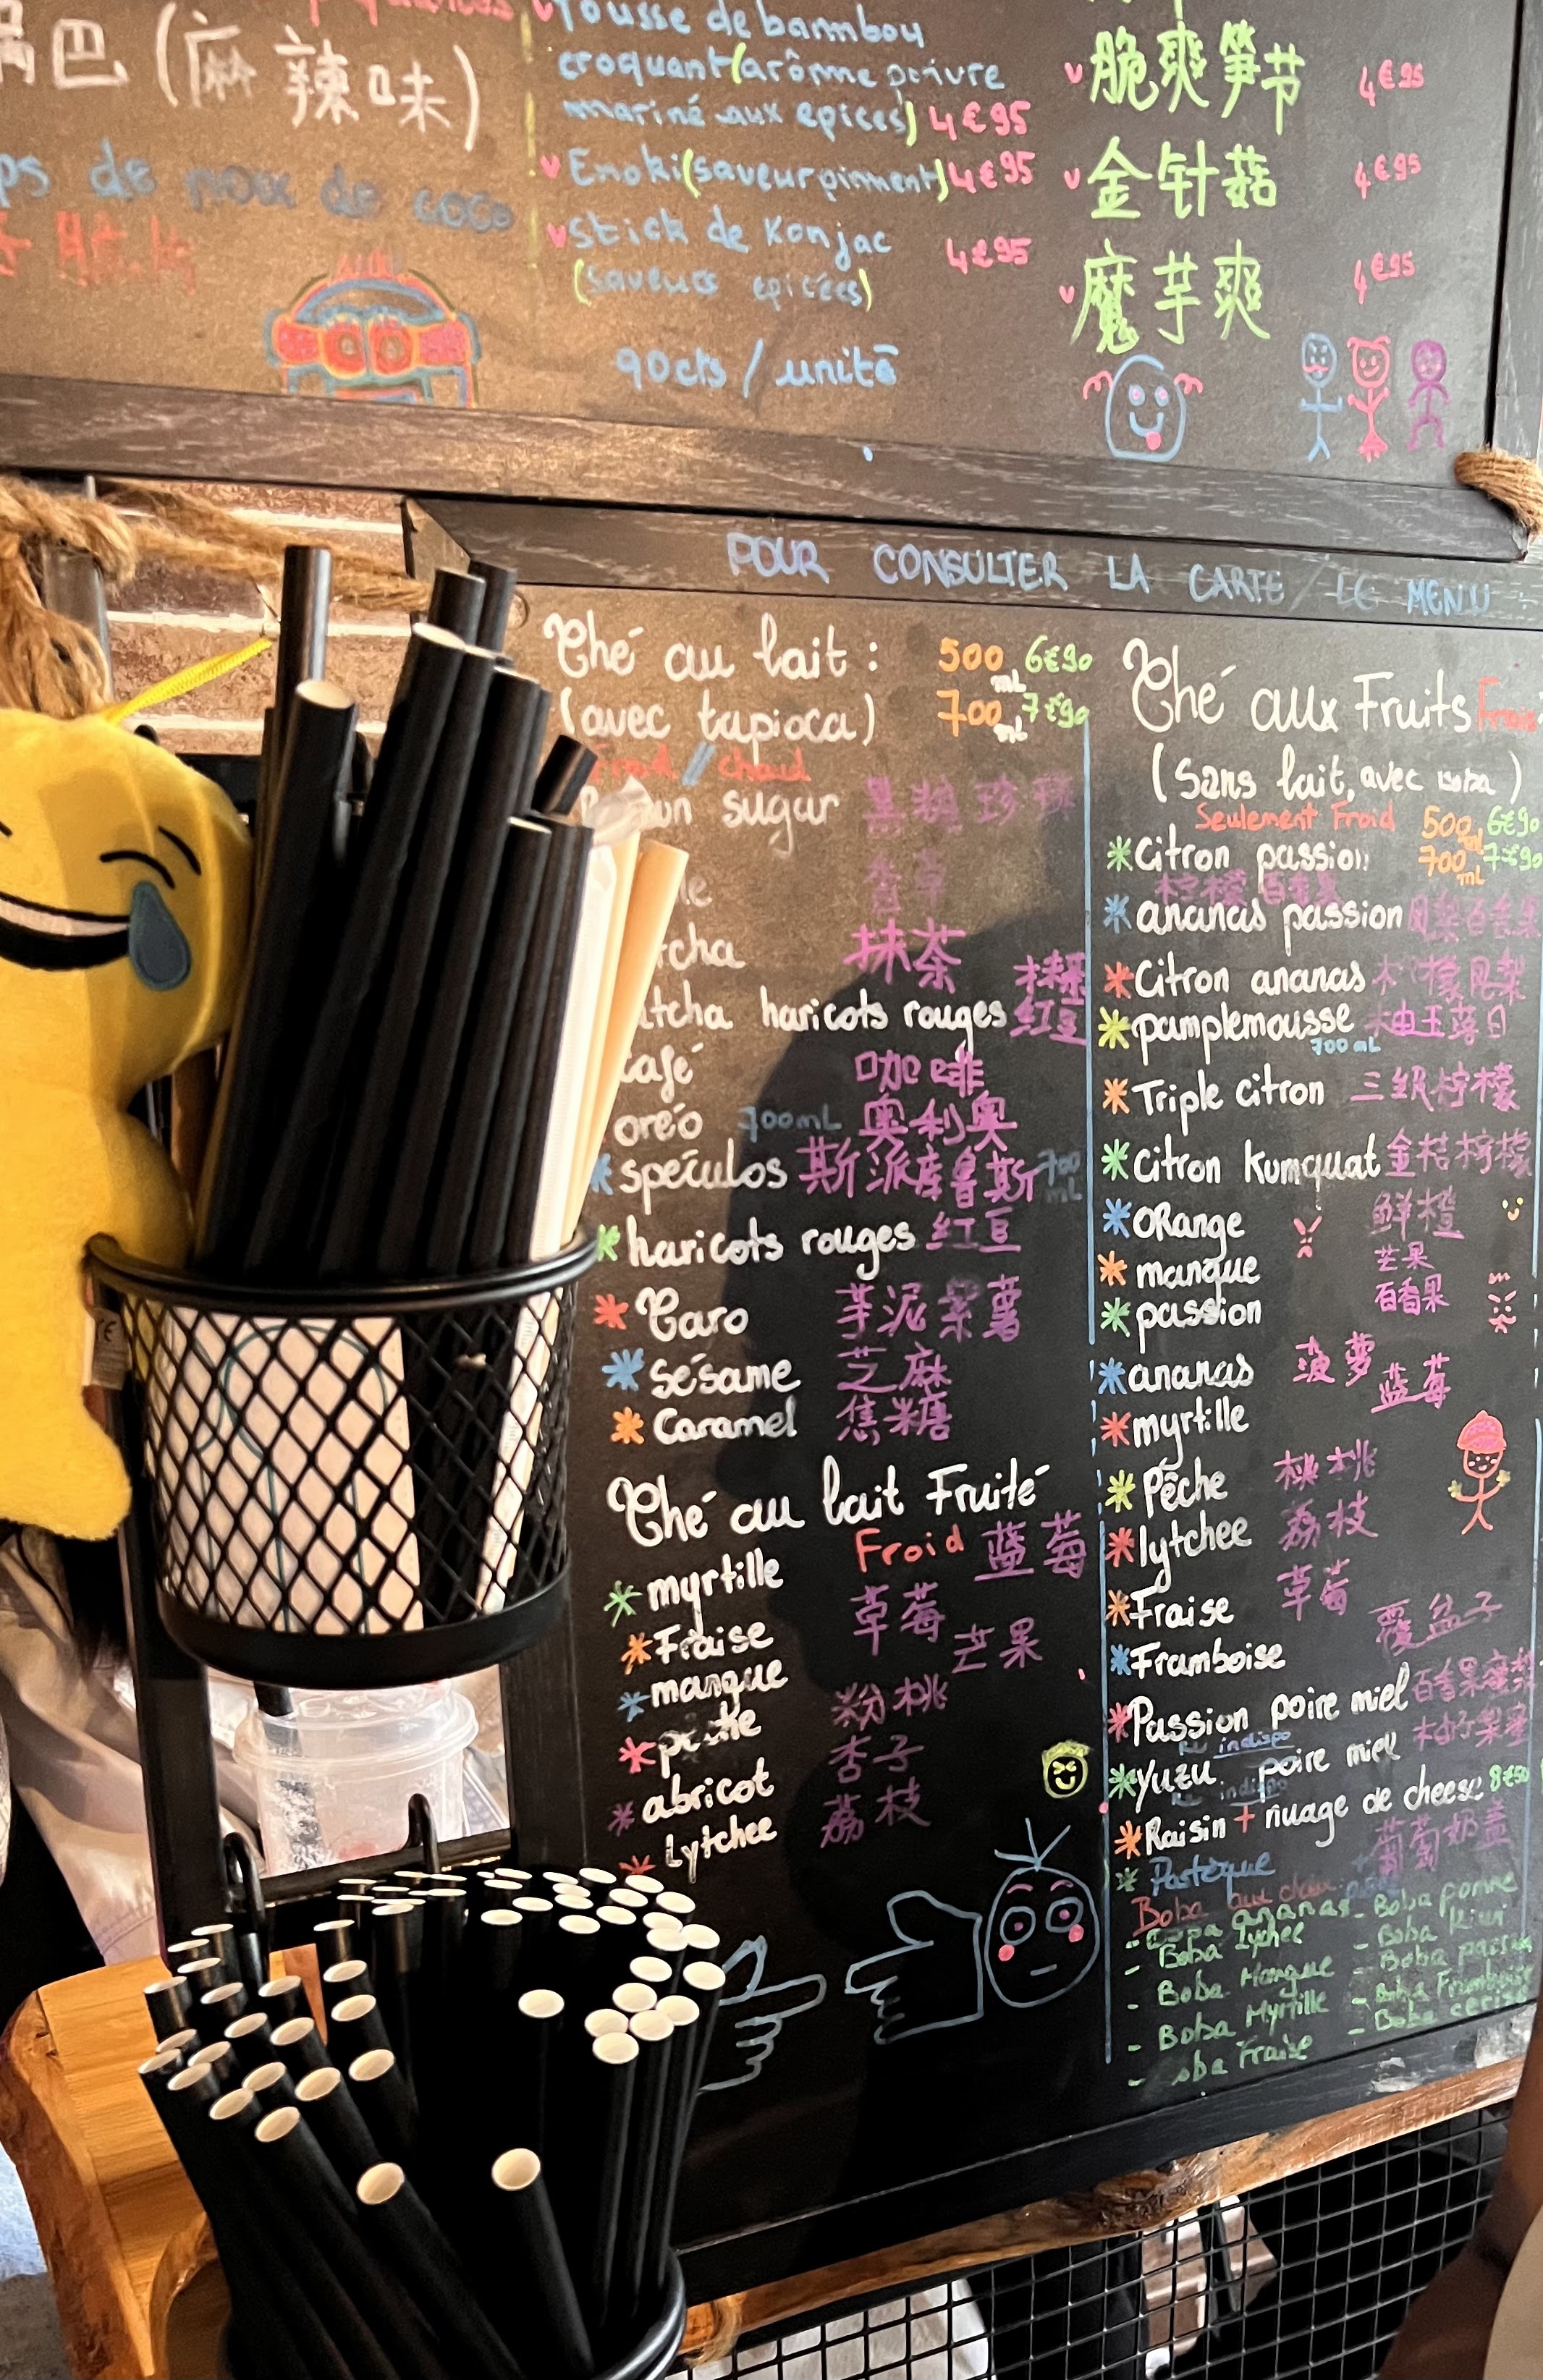 锅巴 (麻辣味)
de noix de coco
Pousse de bambou
croquant (arôme poivre
mariné aux epices) 4€95
Enoki (saveur piment) 4€95
Stick de Konjac 4€95
(saveurs epicées)
90cts / unité
脆爽笋节 4€95
金针菇 4€95
魔芋爽 4€95
POUR CONSULTER LA CARTE / LE MENU :
Thé au lait : 500 mL 6€90
(avec tapioca) 700 mL 7€90
Froid / chaud
sugar 黑糖珍珠
香草
tcha 抹茶
tcha haricots rouges 抹茶红豆
café 咖啡
oréo 700mL 奥利奥
spéculos 斯派库鲁斯 700 mL
haricots rouges 红豆
Taro 芋泥紫薯
sésame 芝麻
Caramel 焦糖
Thé au lait Fruité
Froid
myrtille 蓝莓
Fraise 草莓
mangue 芒果
pêche 粉桃
abricot 杏子
Lytchee 荔枝
Thé aux Fruits Frais
(Sans lait, avec boba)
Seulement Froid 500 mL 6€90
Citron passion 700 mL 7€90
柠檬百香果
ananas passion 凤梨百香果
Citron ananas 柠檬凤梨
pamplemousse
700 mL
Triple citron 三级柠檬
Citron Kumquat 金桔柠檬
ORange 鲜橙
mangue 芒果
passion 百香果
ananas 菠萝
myrtille 蓝莓
Pêche 桃
lytchee 荔枝
Fraise 草莓
Framboise 覆盆子
Passion poire miel
indispo
Yuzu poire miel
indispo
Raisin + nuage de cheese 8€50
葡萄奶盖
Pastèque
Boba au choix
Boba ananas - Boba pomme
- Boba Lychee - Boba kiwi
- Boba Mangue - Boba passion
- Boba Myrtille - Boba Framboise
- Boba Fraise - Boba cerise